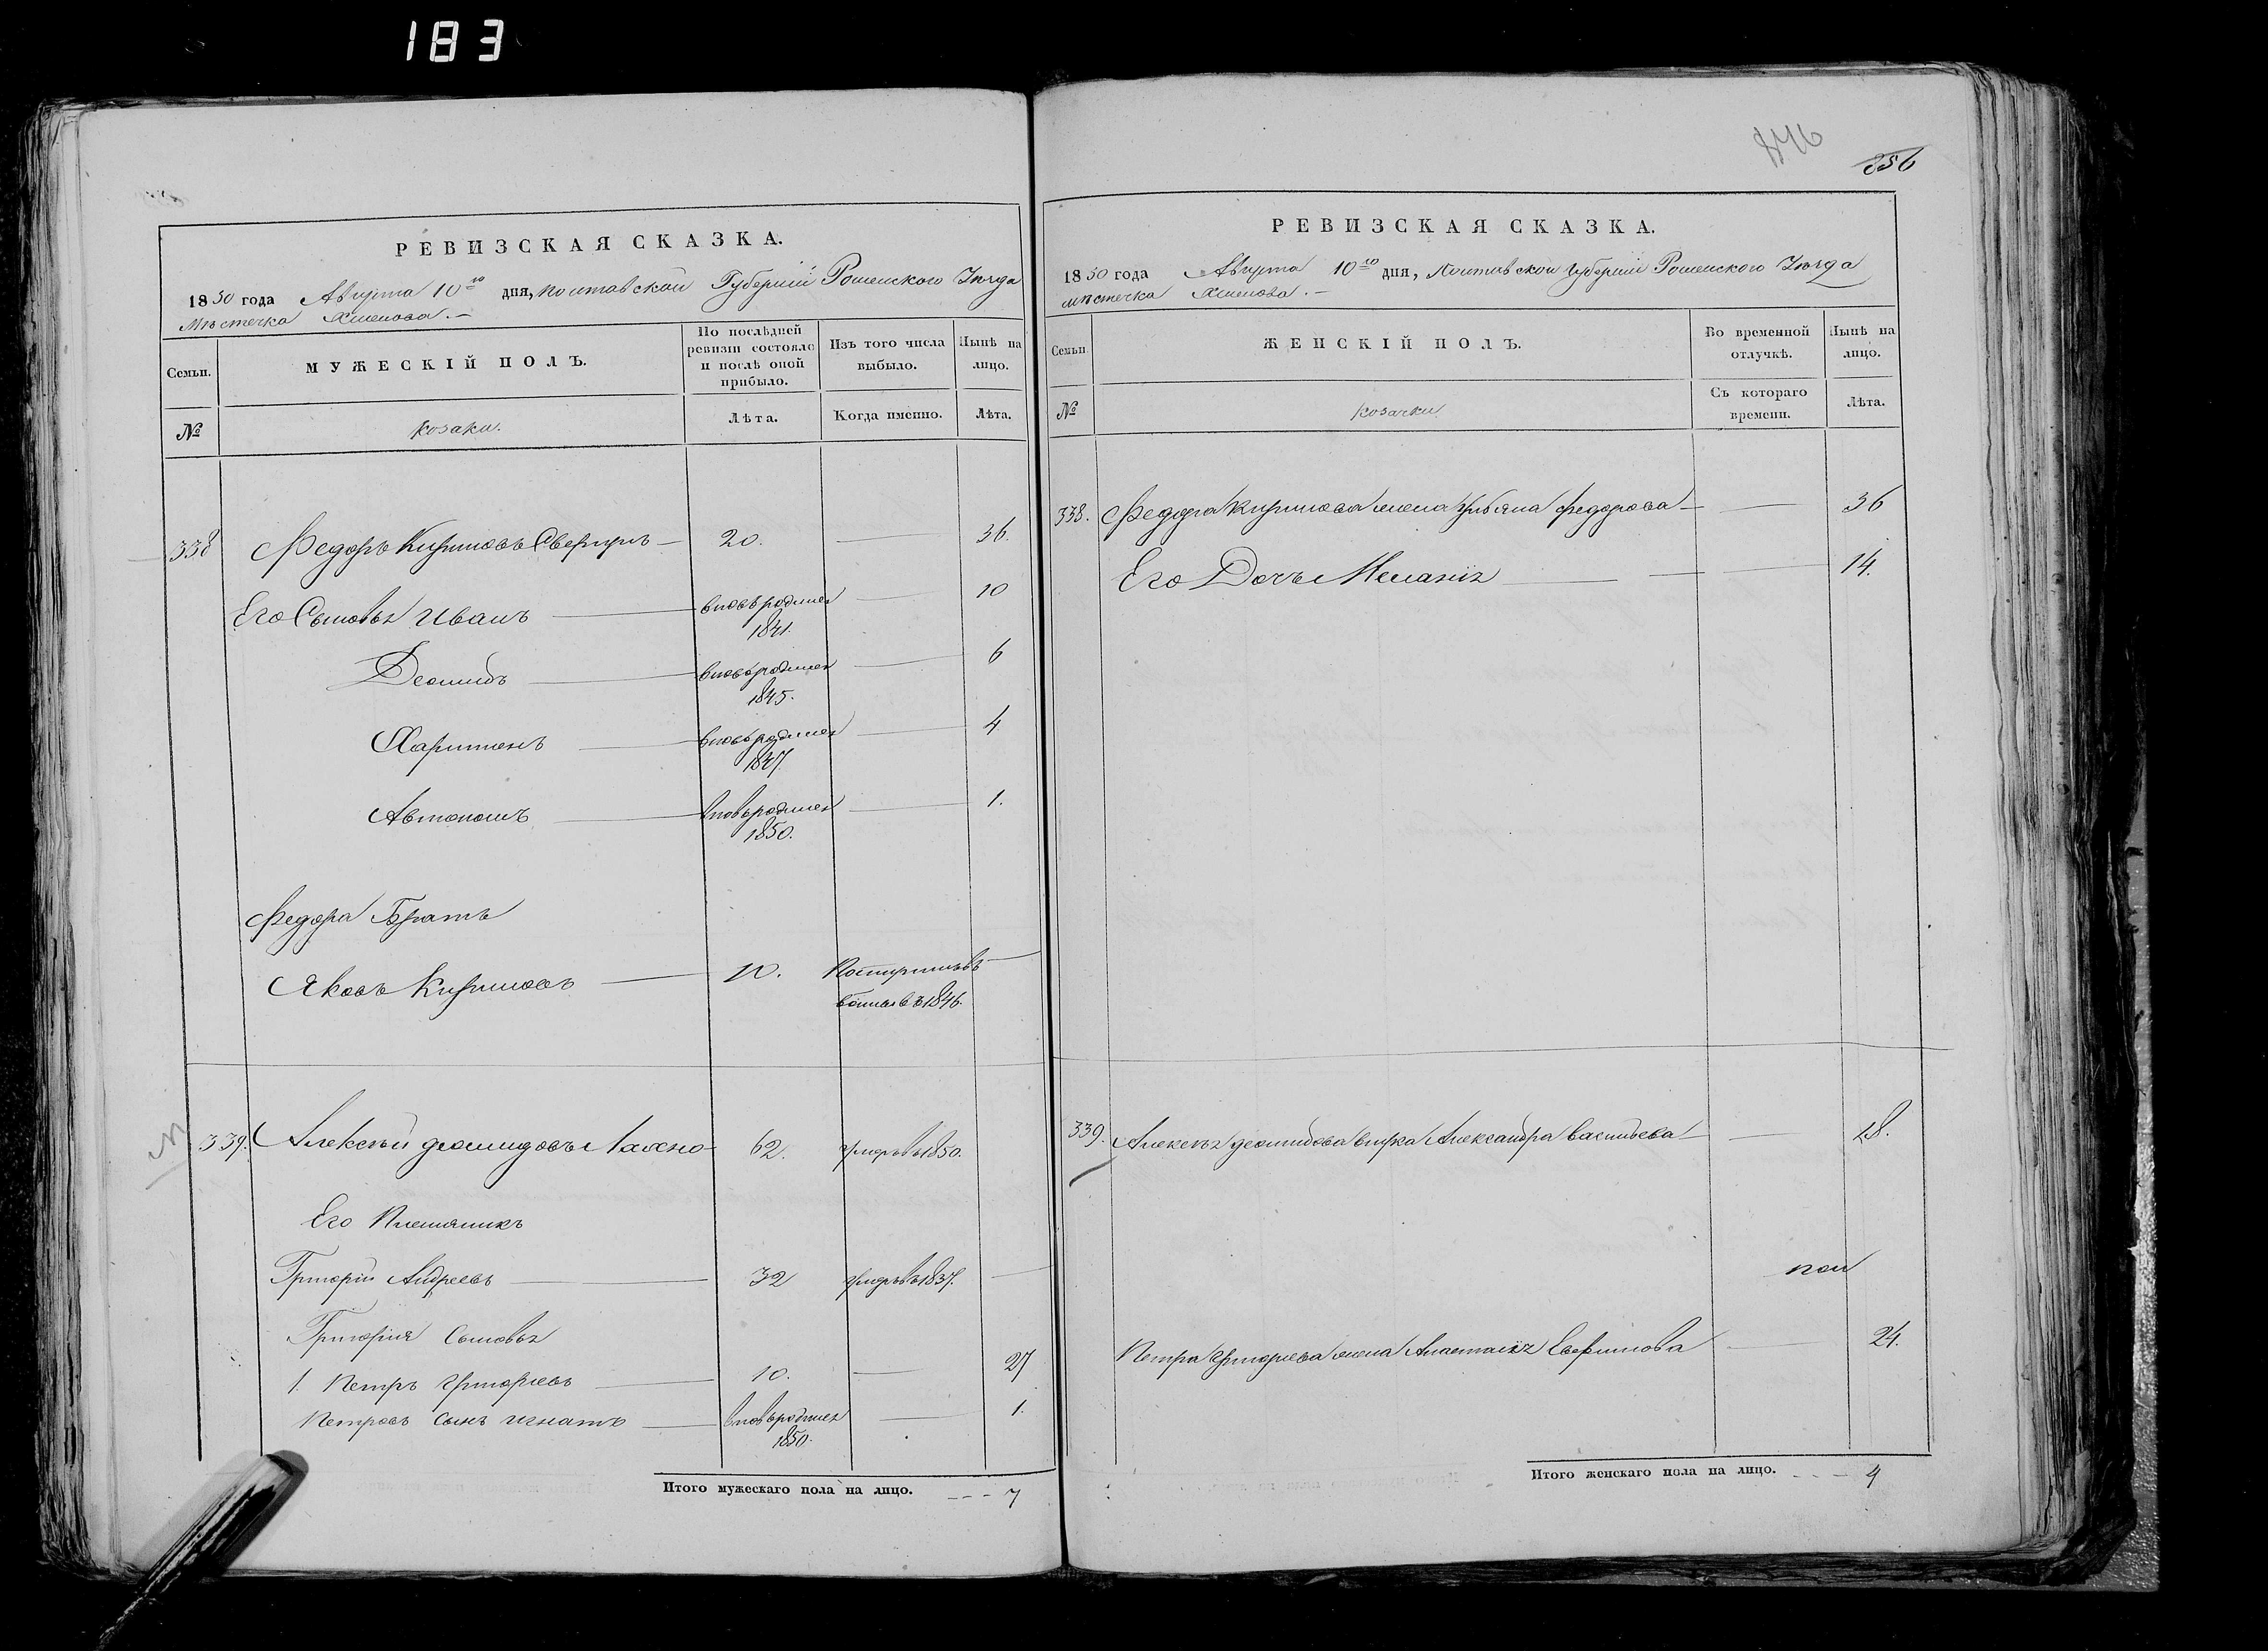 183
846
256
РЕВИЗСКАЯ СКАЗКА.
1850 года Августа 10го дня, Полтавской Губернии Роменского Уезда
Местечка Хмелова. —
Семьи. МУЖЕСКІЙ ПОЛЪ. По послѣдней ревизіи состояло и послѣ оной прибыло. Изъ того числа выбыло. Нынѣ на лицо.
№ козаки. Лѣта. Когда именно. Лѣта.
338 Федоръ Кириловъ — 20. — 36.
Его Сыновья Иванъ — вновьродился 1841. — 10
Деомидъ — вновьродился 1845. — 6
Харитонъ — вновьродился 1847. — 4
Автономъ — вновьродился 1850. — 1.
Федора Братъ
Яковъ Кириловъ — 10. — въ 1846.
339. Алексѣй Деомидовъ Лахно 62. умръвъ 1850.
Его Племяникъ
Григорій Андреевъ — 32 умръвъ 1837. —
Григорія Сыновья
1. Петръ Григорьевъ — 10. — 27
Петровъ сынъ Игнатъ — вновьродился 1850. — 1.
Итого мужескаго пола на лицо. --- 7
РЕВИЗСКАЯ СКАЗКА.
1850 года Августа 10го дня, Полтавской Губернии Роменского Уезда
местечка Хмелова. —
Семьи. ЖЕНСКІЙ ПОЛЪ. Во временной отлучкѣ. Нынѣ на лицо.
№ козачки Съ котораго времени. Лѣта.
338. Федора Кирилова жена Ульяна Федорова — 36
Его Дочь Меланія — 14.
339. Алексѣя Деомидова внука Александра Васильева — 18.
Петра Григорьева жена Анастасія Евфимова — 24.
Итого женскаго пола на лицо. --- 4